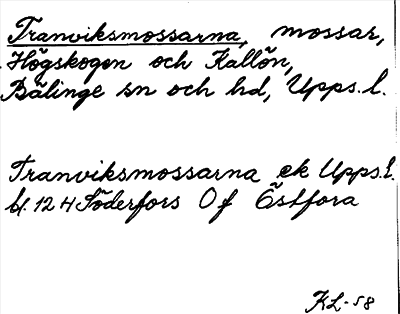 Tranviksmossarna, mossar,
Högskogen och Kallön,
Bälinge sn och hd, Upps.l.
Tranviksmossarna ek Upps.l.
bl. 124 Söderfors Of Östfora
KL-58